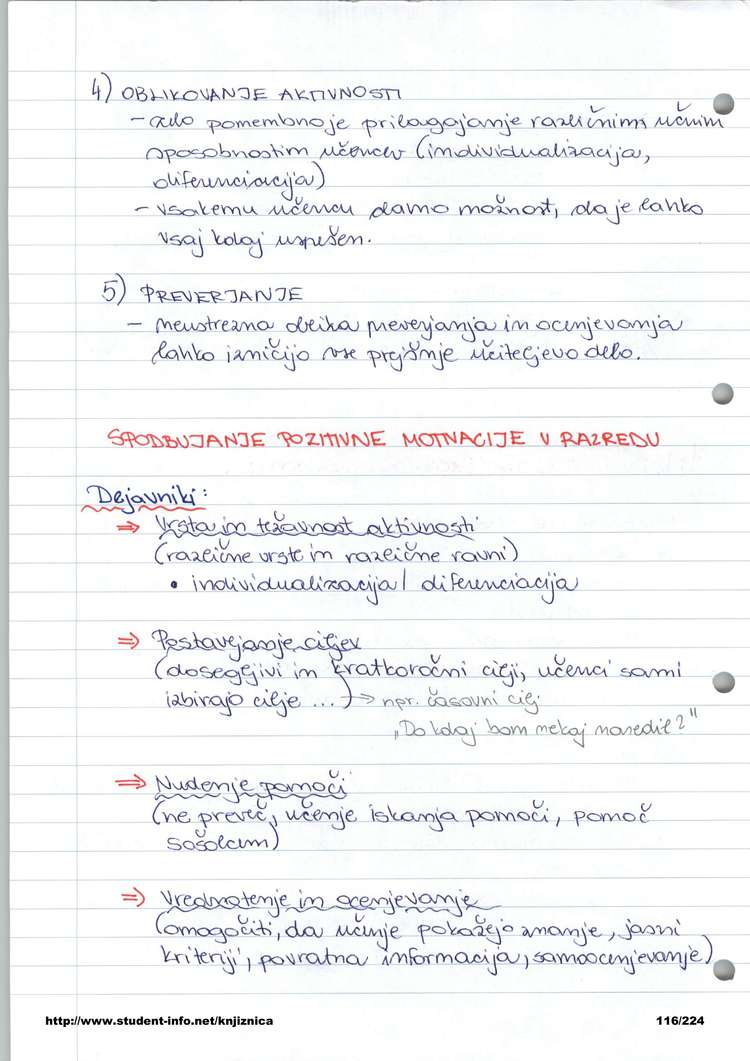 4) OBLIKOVANJE AKTIVNOSTI
- zelo pomembno je prilagajanje različnimi učnim
sposobnostim učencev (individualizacija,
diferenciacija)
- vsakemu učencu damo možnost, da je lahko
vsaj kdaj uspešen.
5) PREVERJANJE
- neustrezna oblika preverjanja in ocenjevanja
lahko izničijo vse prejšnje učiteljevo delo.
SPODBUJANJE POZITIVNE MOTIVACIJE V RAZREDU
Dejavniki:
⇒ Vrsta in težavnost aktivnosti
(različne vrste in različne ravni)
• individualizacija / diferenciacija
⇒ Postavljanje ciljev
(dosegljivi in kratkoročni cilji, učenci sami
izbirajo cilje ...) → npr. časovni cilj
"Do kdaj bom nekaj naredil?"
⇒ Nudenje pomoči
(ne preveč, učenje iskanja pomoči, pomoč
sošolcem)
⇒ Vrednotenje in ocenjevanje
(omogočiti, da učinje pokažejo znanje, jasni
kriteriji, povratna informacija, samoocenjevanje)
http://www.student-info.net/knjiznica 116/224